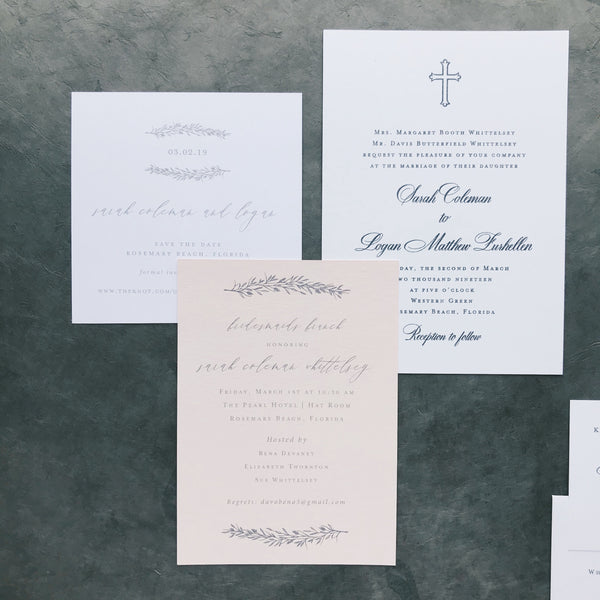 03.02.19
sarah coleman and logan
SAVE THE DATE
ROSEMARY BEACH, FLORIDA
formal
WWW.THEKNOT.COM/
MRS. MARGARET BOOTH WHITTELSEY
MR. DAVIS BUTTERFIELD WHITTELSEY
REQUEST THE PLEASURE OF YOUR COMPANY
AT THE MARRIAGE OF THEIR DAUGHTER
Sarah Coleman
to
Logan Matthew Furhellen
DAY, THE SECOND OF MARCH
TWO THOUSAND NINETEEN
AT FIVE O'CLOCK
WESTERN GREEN
ROSEMARY BEACH, FLORIDA
Reception to follow
bridesmaids brunch
HONORING
sarah coleman whittelsey
FRIDAY, MARCH 1ST AT 10:30 AM
THE PEARL HOTEL | HAT ROOM
ROSEMARY BEACH, FLORIDA
Hosted by
BENA DEVANEY
ELIZABETH THORNTON
SUE WHITTELSEY
Regrets: davobena3@gmail.com
K